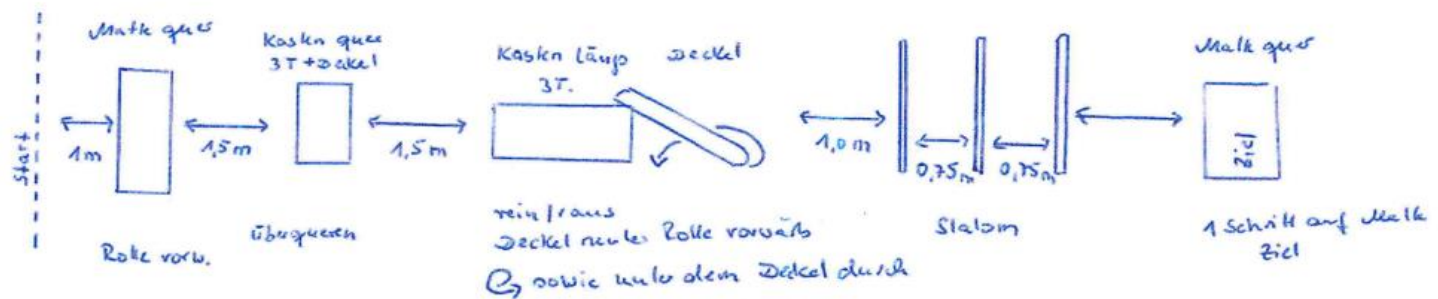 Start
Matte quer
1m
Rolle vorw.
1,5m
Kasten quer
3T + Deckel
überqueren
1,5m
Kasten längs Deckel
3T.
rein/raus
Deckel runter Rolle vorwärts
sowie unter dem Deckel durch
1,0m
0,75m
0,75m
Slalom
Matte quer
Ziel
1 Schritt auf Matte
Ziel